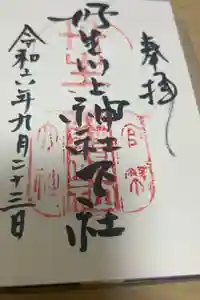 奉拝
丹生川上神社下社
令和六年九月二十三日